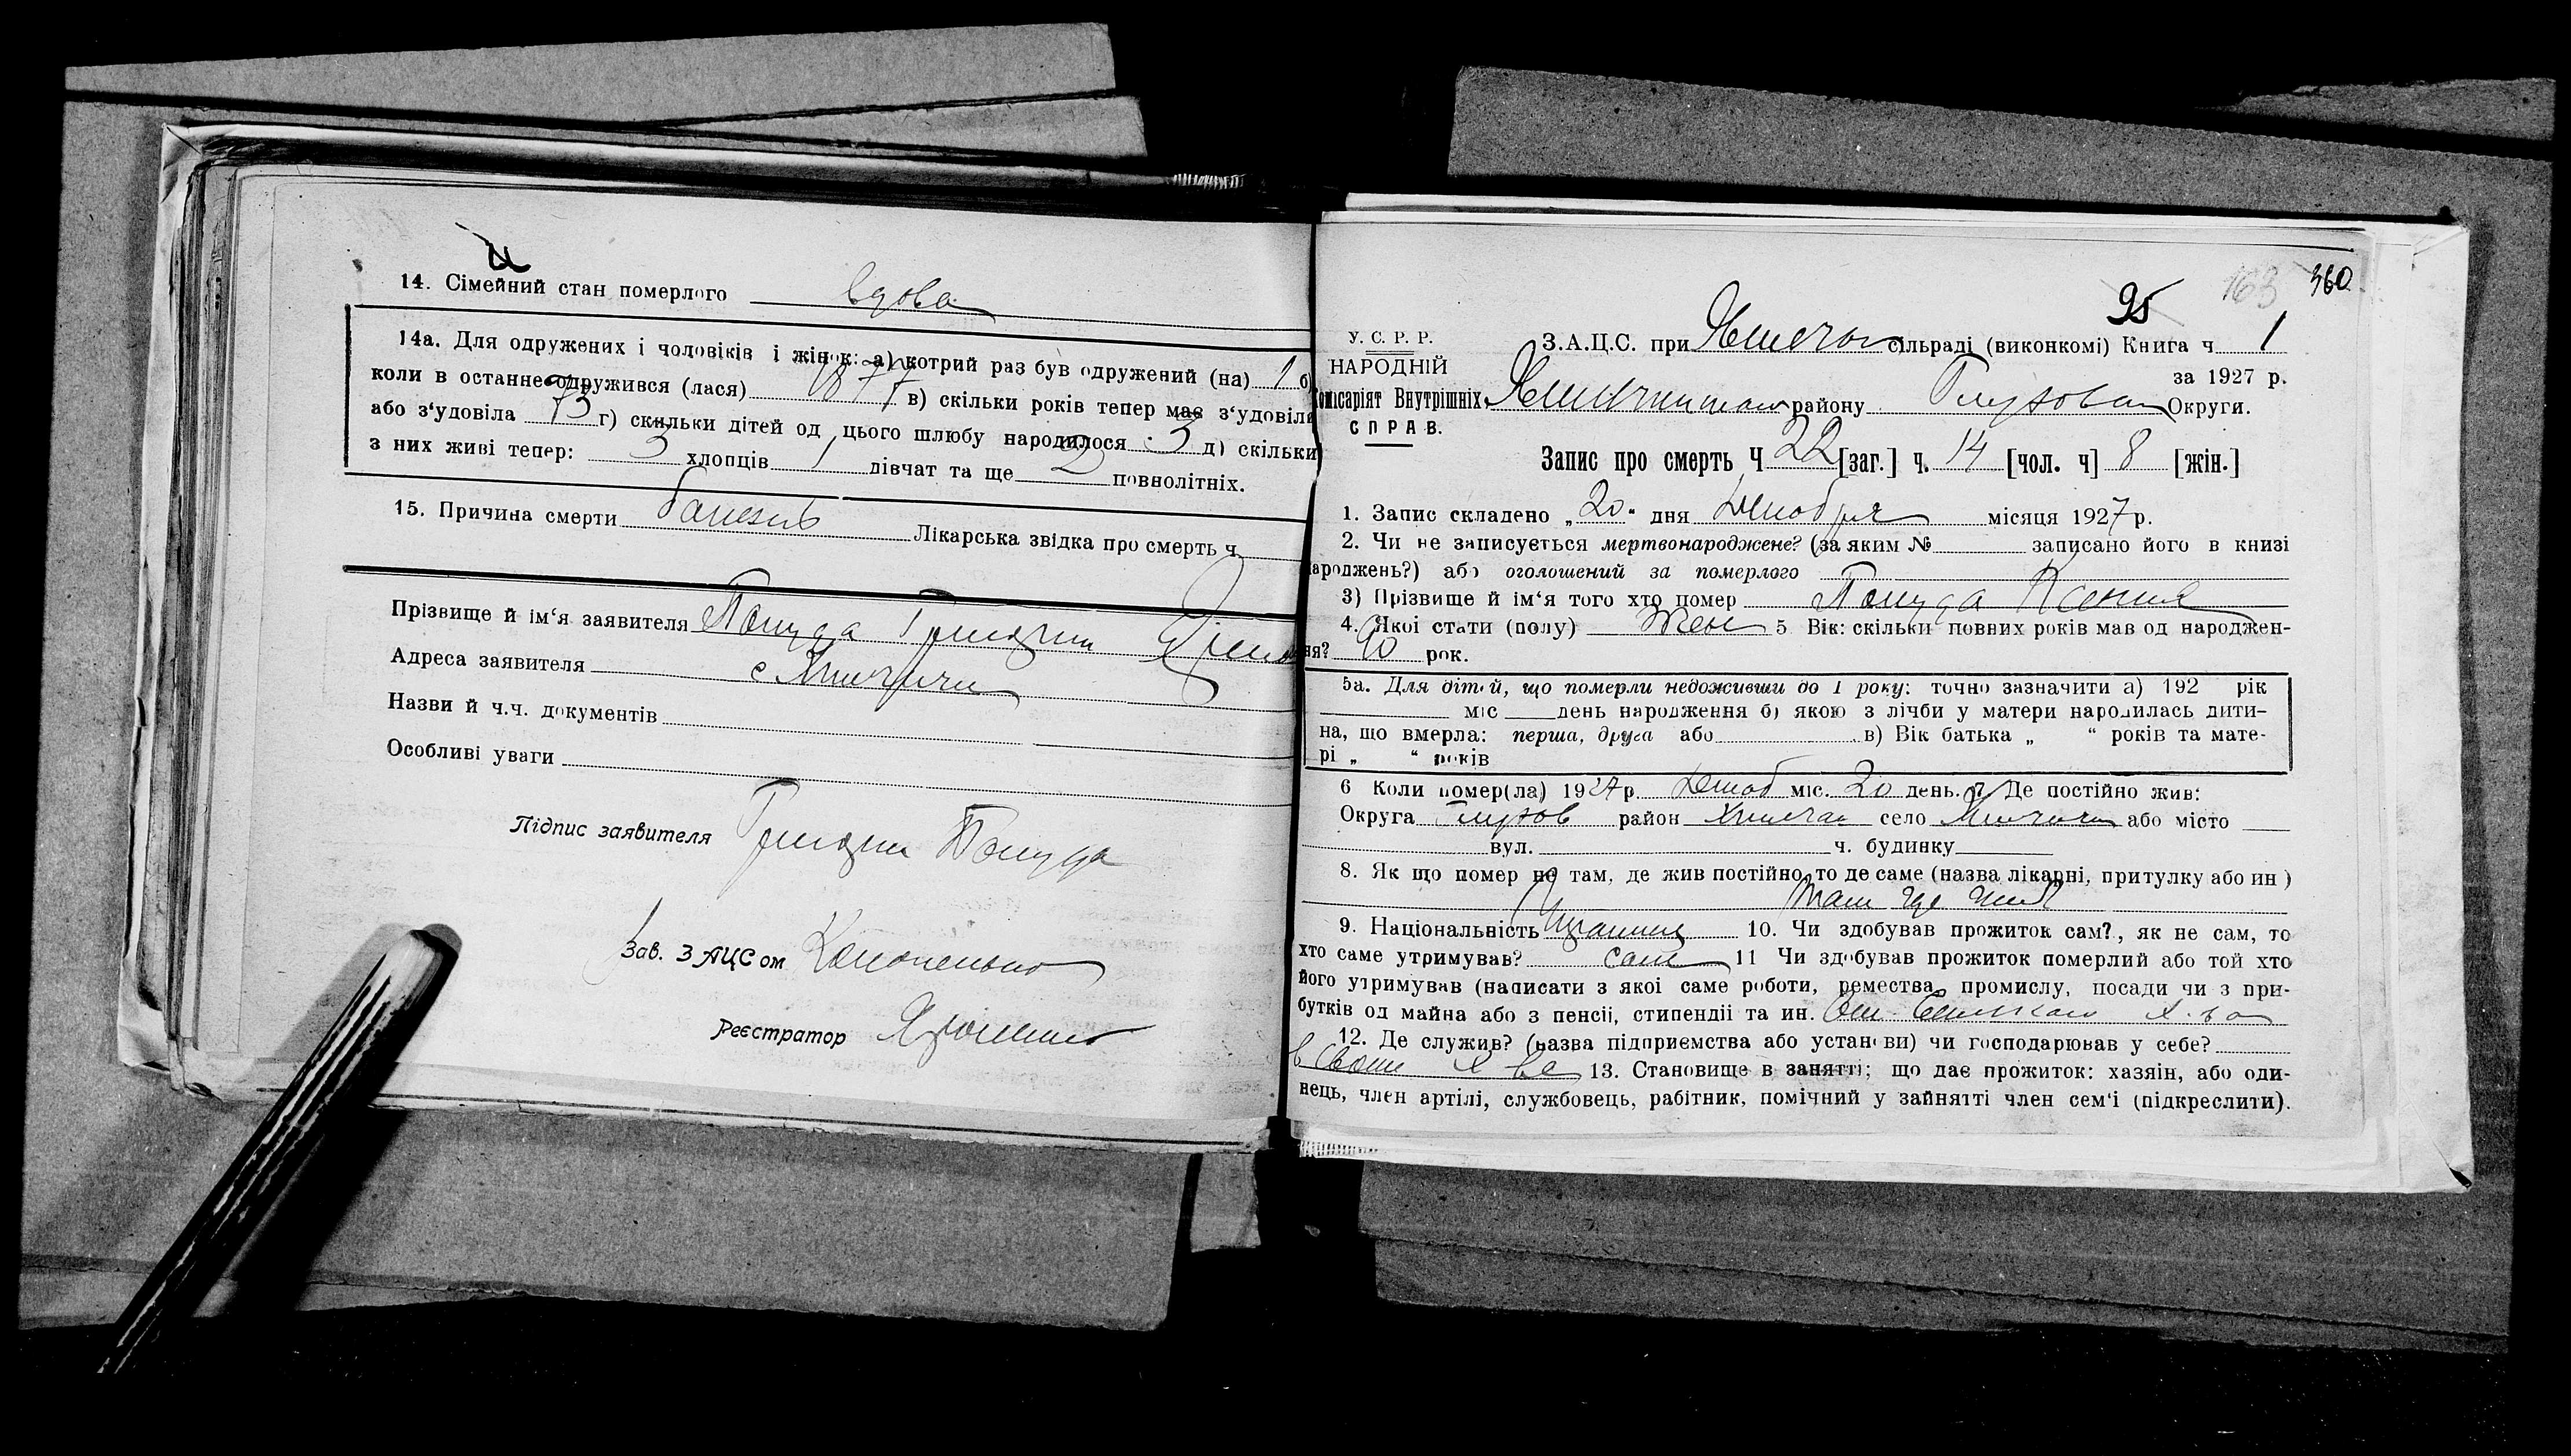 14. Сімейний стан померлого вдова
14а. Для одружених і чоловіків і жінок: а) котрий раз був одружений (на) 1 б)
коли в останнє одружився (лася) 1877 в) скільки років тепер має з‘удовіля
або з‘удовіла г) скильки дітей од цього шлюбу народилося 3 д) скільки
з них живі тепер: 3 хлопців 1 дівчат та ще 2 повнолітніх.
15. Причина смерти Лікарська звідка про смерть ч.
Прізвище й ім‘я заявителя
Адреса заявителя с
Назви й ч.ч. документів
Особливі уваги
Підпис заявителя
Зав. ЗАЦСом
Реєстратор
95 163 360
У. С. Р. Р.
НАРОДНІЙ
Комісаріят Внутрішніх
СПРАВ.
З.А.Ц.С. при сільраді (виконкомі) Книга ч 1
за 1927 р.
району Глухова Округи.
Запис про смерть Ч 22 [заг.] ч. 14 [чол. ч] 8 [жін.]
1. Запис складено „20“ дня Декабря місяця 1927 р.
2. Чи не записується мертвонароджене? (за яким № записано його в книзі
народжень?) або оголошений за померлого
3) Прізвище й ім‘я того хто помер Ксения
4. Якої стати (полу) Жен 5 Вік: скільки повних років мав од народжен-
ня? 90 рок.
5а. Для дітей, що померли недоживши до 1 року: точно зазначити а) 192 рік
міс день народження б) якою з лічби у матери народилась дити-
на, що вмерла: перша, друга або в) Вік батька „ “ років та мате-
рі „ “ років
6 Коли помер(ла) 1927 р. Декаб міс. 20 день. 7 Де постійно жив:
Округа Глухов район село або місто
вул. ч. будинку
8. Як що помер не там, де жив постійно, то де саме (назва лікарні, притулку або ин )
Там где жил
9. Національність Украинец 10. Чи здобував прожиток сам?, як не сам, то
хто саме утримував? сам 11 Чи здобував прожиток померлий або той хто
його утримував (написати з якоі саме роботи, ремества, промислу, посади чи з при-
бутків од майна або з пенсіі, стипендіі та ин. От Сельскаго х-ва
12. Де служив? (назва підприємства або установи) чи господарював у себе?
в своем х ве 13. Становище в занятті; що дає прожиток: хазяін, або оди-
нець, член артілі, службовець, рабітник, помічний у зайнятті член сем‘і (підкреслити).